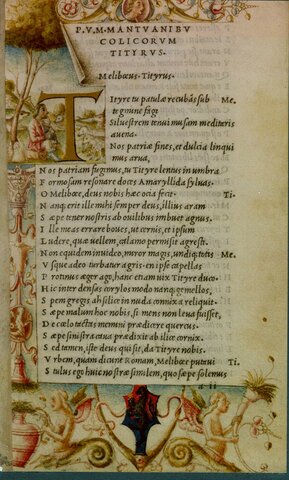 P. V. M. MANTVANI BV
COLICORVM
TITYRVS.
Meliboeus. Tityrus.
Tityre tu patulæ recubás sub Me.
tegmine fagi
Siluestrem tenui musam meditaris
auena.
Nos patriæ fines, et dulcia linqui
mus arua,
Nos patriam fugimus, tu Tityre lentus in umbra
Formosam resonare doces Amaryllida syluas.
O Meliboee, deus nobis hæc ocia fecit. Ti.
Nanq; erit ille mihi semper deus, illius aram
Sæpe tener nostris ab ouilibus imbuet agnus.
Ille meas errare boues, ut cernis, et ipsum
Ludere, quæ uellem, calamo permisit agresti.
Non equidem inuideo, miror magis, undiq; totis Me.
Vsque adeo turbatur agris. en ipse capellas
Protinus æger ago, hanc etiam uix Tityre duco.
Hic inter densas corylos modo nanq; gemellos,
Spem gregis ah silice in nuda connixa reliquit.
Sæpe malum hoc nobis, si mens non leua fuisset,
De cœlo tactas memini prædicere quercus.
Sæpe sinistra caua prædixit ab ilice cornix.
Sed tamen, iste deus qui sit, da Tityre nobis.
Vrbem, quam dicunt Romam, Meliboee putaui Ti.
Stultus ego huic nostræ similem, quo sæpe solemus
a ii